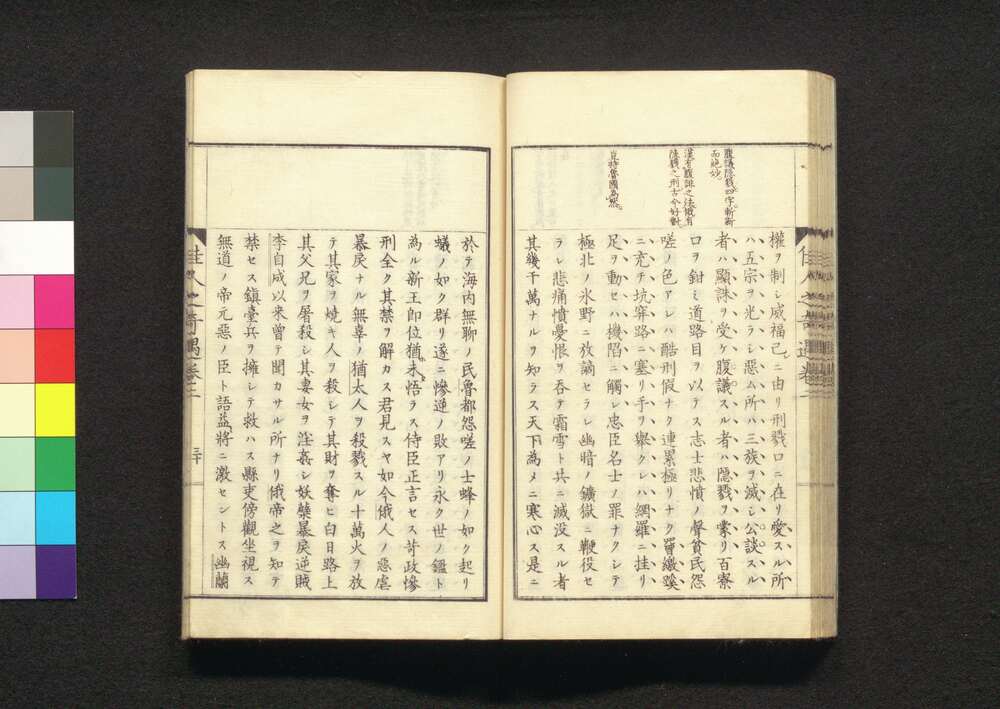 腹議隱戮四字斬新
而絶妙
漢有腹誹之法俄有
隱戮之刑古今好對
豈特魯國為然
權ヲ制シ威福己ニ由リ刑戮口ニ在リ愛スル所
ハ五宗ヲ光ラシ惡ム所ハ三族ヲ滅シ公談スル
者ハ顯誅ヲ受ケ腹議スル者ハ隱戮ヲ蒙リ百寮
口ヲ鉗ミ道路目ヲ以テス志士悲憤ノ聲貧民怨
嗟ノ色アレハ酷刑假ナク連累極リナク罾繳蹊
ニ充チ坑穽路ニ塞リ手ヲ擧クレハ網羅ニ挂リ
足ヲ動セハ機陷ニ觸レ忠臣名士ノ罪ナクシテ
極北ノ氷野ニ放謫セラレ幽暗ノ鑛獄ニ鞭役セ
ラレ悲痛憤憂恨ヲ呑テ霜雪ト共ニ滅沒スル者
其幾千萬ナルヲ知ラス天下為メニ寒心ス是ニ
佳人之奇遇卷二
於テ海内無聊ノ民魯都怨嗟ノ士蜂ノ如ク起リ
蟻ノ如ク群リ遂ニ慘逆ノ敗アリ永ク世ノ鑑ト
為ル新王即位猶未悟ラス侍臣正言セス苛政慘
刑全ク其禁ヲ解カス君見スヤ如今俄人ノ惡虐
暴戻ナル無辜ノ猶太人ヲ殺戮スル十萬火ヲ放
テ其家ヲ燒キ人ヲ殺シテ其財ヲ奪ヒ白日路上
其父兄ヲ屠殺シ其妻女ヲ淫姦シ妖孽暴戻逆賊
李自成以来曾テ聞カサル所ナリ俄帝之ヲ知テ
禁セス鎮臺兵ヲ擁シテ救ハス縣吏傍觀坐視ス
無道ノ帝元惡ノ臣ト語益將ニ激セントス幽蘭
佳人之奇遇卷二
三十